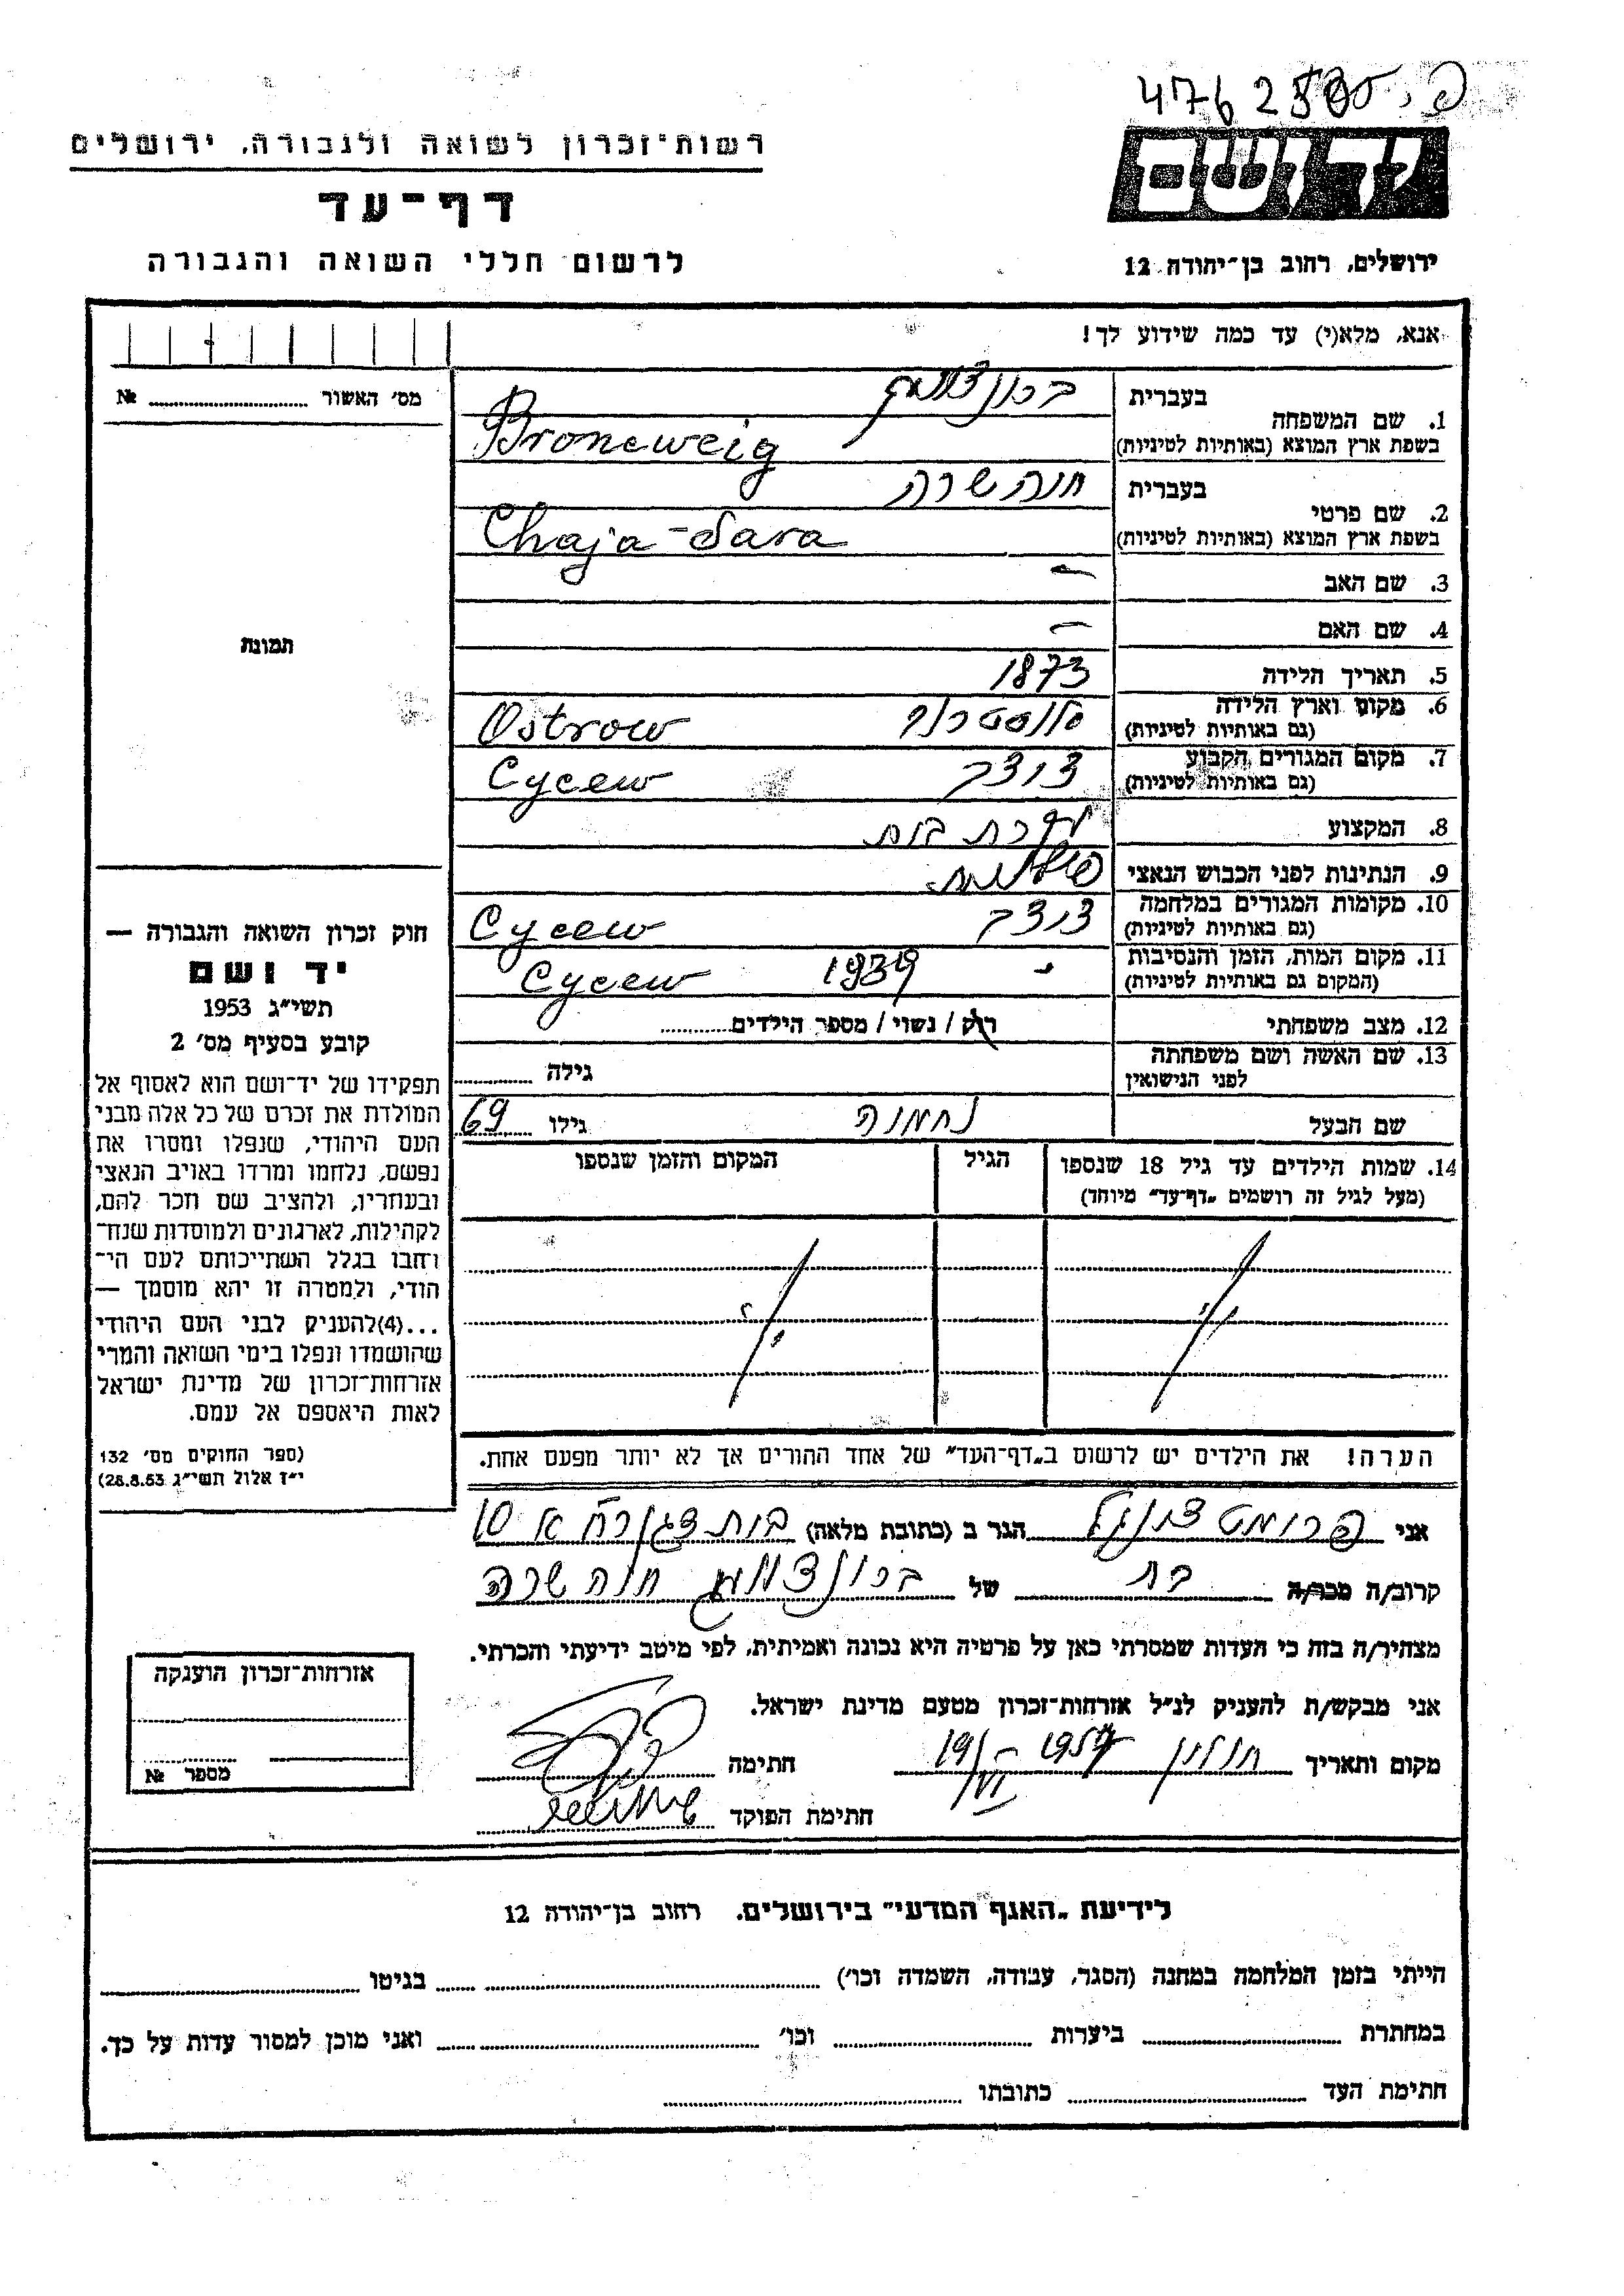 476 2
רשות־זכרון לשואה ולגבורה, ירושלים
ידושם
דף־עד
לרשום חללי השואה והגבורה
ירושלים, רחוב בן־יהודה 12
אנא, מלא(י) עד כמה שידוע לך!
מס׳ האשור № 
1. שם המשפחה
בעברית
בשפת ארץ המוצא (באותיות לטיניות) Broneweig
2. שם פרטי
בעברית חיה שרה
בשפת ארץ המוצא (באותיות לטיניות) Chaja-Sara
3. שם האב —
4. שם האם —
5. תאריך הלידה 1873
6. מקום וארץ הלידה
(גם באותיות לטיניות) Ostrow
7. מקום המגורים הקבוע
(גם באותיות לטיניות) Cycew
8. המקצוע עקרת בית
9. הנתינות לפני הכבוש הנאצי פולנית
10. מקומות המגורים במלחמה
(גם באותיות לטיניות) Cycew
11. מקום המות, הזמן והנסיבות
(המקום גם באותיות לטיניות) 1939 Cycew
12. מצב משפחתי רוק / נשוי / מספר הילדים
13. שם האשה ושם משפחתה
לפני הנישואין גילה
שם הבעל נחמיה גילו 69
14. שמות הילדים עד גיל 18 שנספו
(מעל לגיל זה רושמים „דף־עד״ מיוחד)
הגיל
המקום והזמן שנספו
הערה! את הילדים יש לרשום ב„דף־העד״ של אחד ההורים אך לא יותר מפעם אחת.
תמונה
חוק זכרון השואה והגבורה —
יד ושם
תשי״ג 1953
קובע בסעיף מס׳ 2
תפקידו של יד־ושם הוא לאסוף אל
המולדת את זכרם של כל אלה מבני
העם היהודי, שנפלו ומסרו את
נפשם, נלחמו ומרדו באויב הנאצי
ובעוזריו, ולהציב שם וזכר להם,
לקהילות, לארגונים ולמוסדות שנח־
רחבו בגלל השתייכותם לעם הי־
הודי, ולמטרה זו יהא מוסמך —
...(4)להעניק לבני העם היהודי
שהושמדו ונפלו בימי השואה והמרי
אזרחות־זכרון של מדינת ישראל
לאות היאספם אל עמם.
(ספר החוקים מס׳ 132
י״ז אלול תשי״ג 28.8.53)
אני הגר ב (כתובת מלאה) 10
קרוב/ה מכר/ה בת של חיה שרה
מצהיר/ה בזה כי העדות שמסרתי כאן על פרטיה היא נכונה ואמיתית, לפי מיטב ידיעתי והכרתי.
אני מבקש/ת להעניק לנ״ל אזרחות־זכרון מטעם מדינת ישראל.
מקום ותאריך חולון 19/VI - 1957 חתימה
חתימת הפוקד
אזרחות־זכרון הוענקה
מספר №
לידיעת „האגף המדעי״ בירושלים, רחוב בן־יהודה 12
הייתי בזמן המלחמה במחנה (הסגר, עבודה, השמדה וכו׳) בגיטו
במחתרת ביערות וכו׳ ואני מוכן למסור עדות על כך.
חתימת העד כתובתו